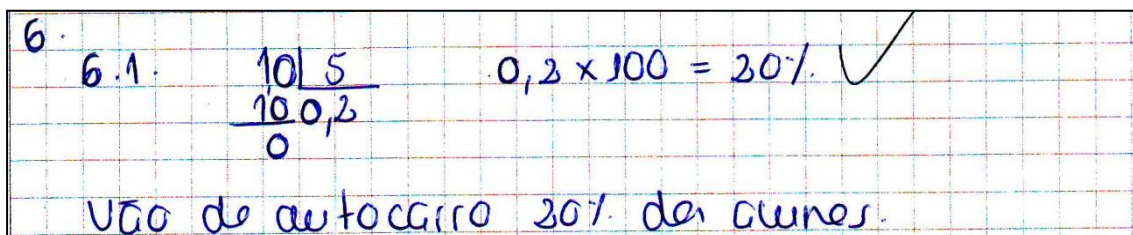 6.
6.1. 10 | 5 0,2 x 100 = 20%. ✓
10 0,2
0
Vão de autocarro 20% dos alunos.